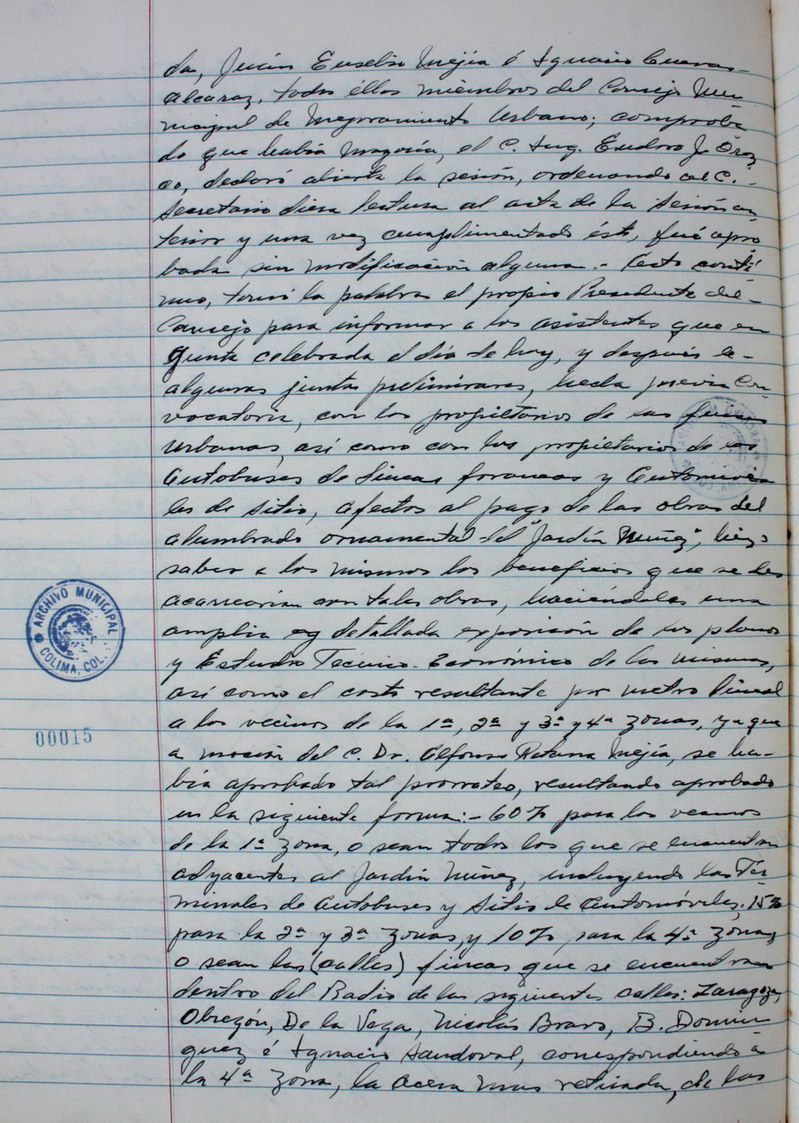 da, Julián Eusebio Mejía é Ignacio Cuevas
Alcaraz, todos éllos miembros del Consejo Mu-
nicipal de Mejoramiento Urbano; comproba
do que había mayoría, el C. Ing. Eudoro J. Oroz
co, declaró abierta la sesión, ordenando al C.
Secretario diera lectura al acta de la sesión an
terior y una vez cumplimentado ésto, fué apro
bada sin modificación alguna.- Acto contí
nuo, tomó la palabra el propio Presidente del
Consejo para informar a los asistentes que en
junta celebrada el día de hoy, y después de
algunas juntas preliminares, hecha previa Con
vocatoria, con los propietarios de las fincas
urbanas, así como con los propietarios de los
Autobuses de Líneas foraneas y Automovi
les de sitio, afectos al pago de las obras del
alumbrado ornamental del "Jardín Núñez", hizo
saber a los mismos los beneficios que se les
acarrearían con tales obras, haciéndoles una
amplia y detallada exposición de los planos
y Estudio Técnico-Económico de las mismas,
así como el costo resultante por metro lineal
a los vecinos de la 1ª, 2ª y 3ª y 4ª zonas, ya que
a moción del C. Dr. Alfonso Retana Mejía, se ha-
bía aprobado tal prorrateo, resultando aprobado
en la siguiente forma:- 60% para los vecinos
de la 1ª zona, o sean todos los que se encuentran
adyacentes al Jardín Núñez, incluyendo las Ter
minales de Autobuses y Sitio de Automóviles; 15%
para la 2ª y 3ª zonas, y 10% para la 4ª zona,
o sean las (calles) fincas que se encuentran
dentro del Radio de las siguientes calles: Zaragoza,
Obregón, De la Vega, Nicolás Bravo, B. Domín
guez é Ignacio Sandoval, correspondiendo a
la 4ª zona, la acera mas retirada, de las
ARCHIVO MUNICIPAL
COLIMA, COL.
00015